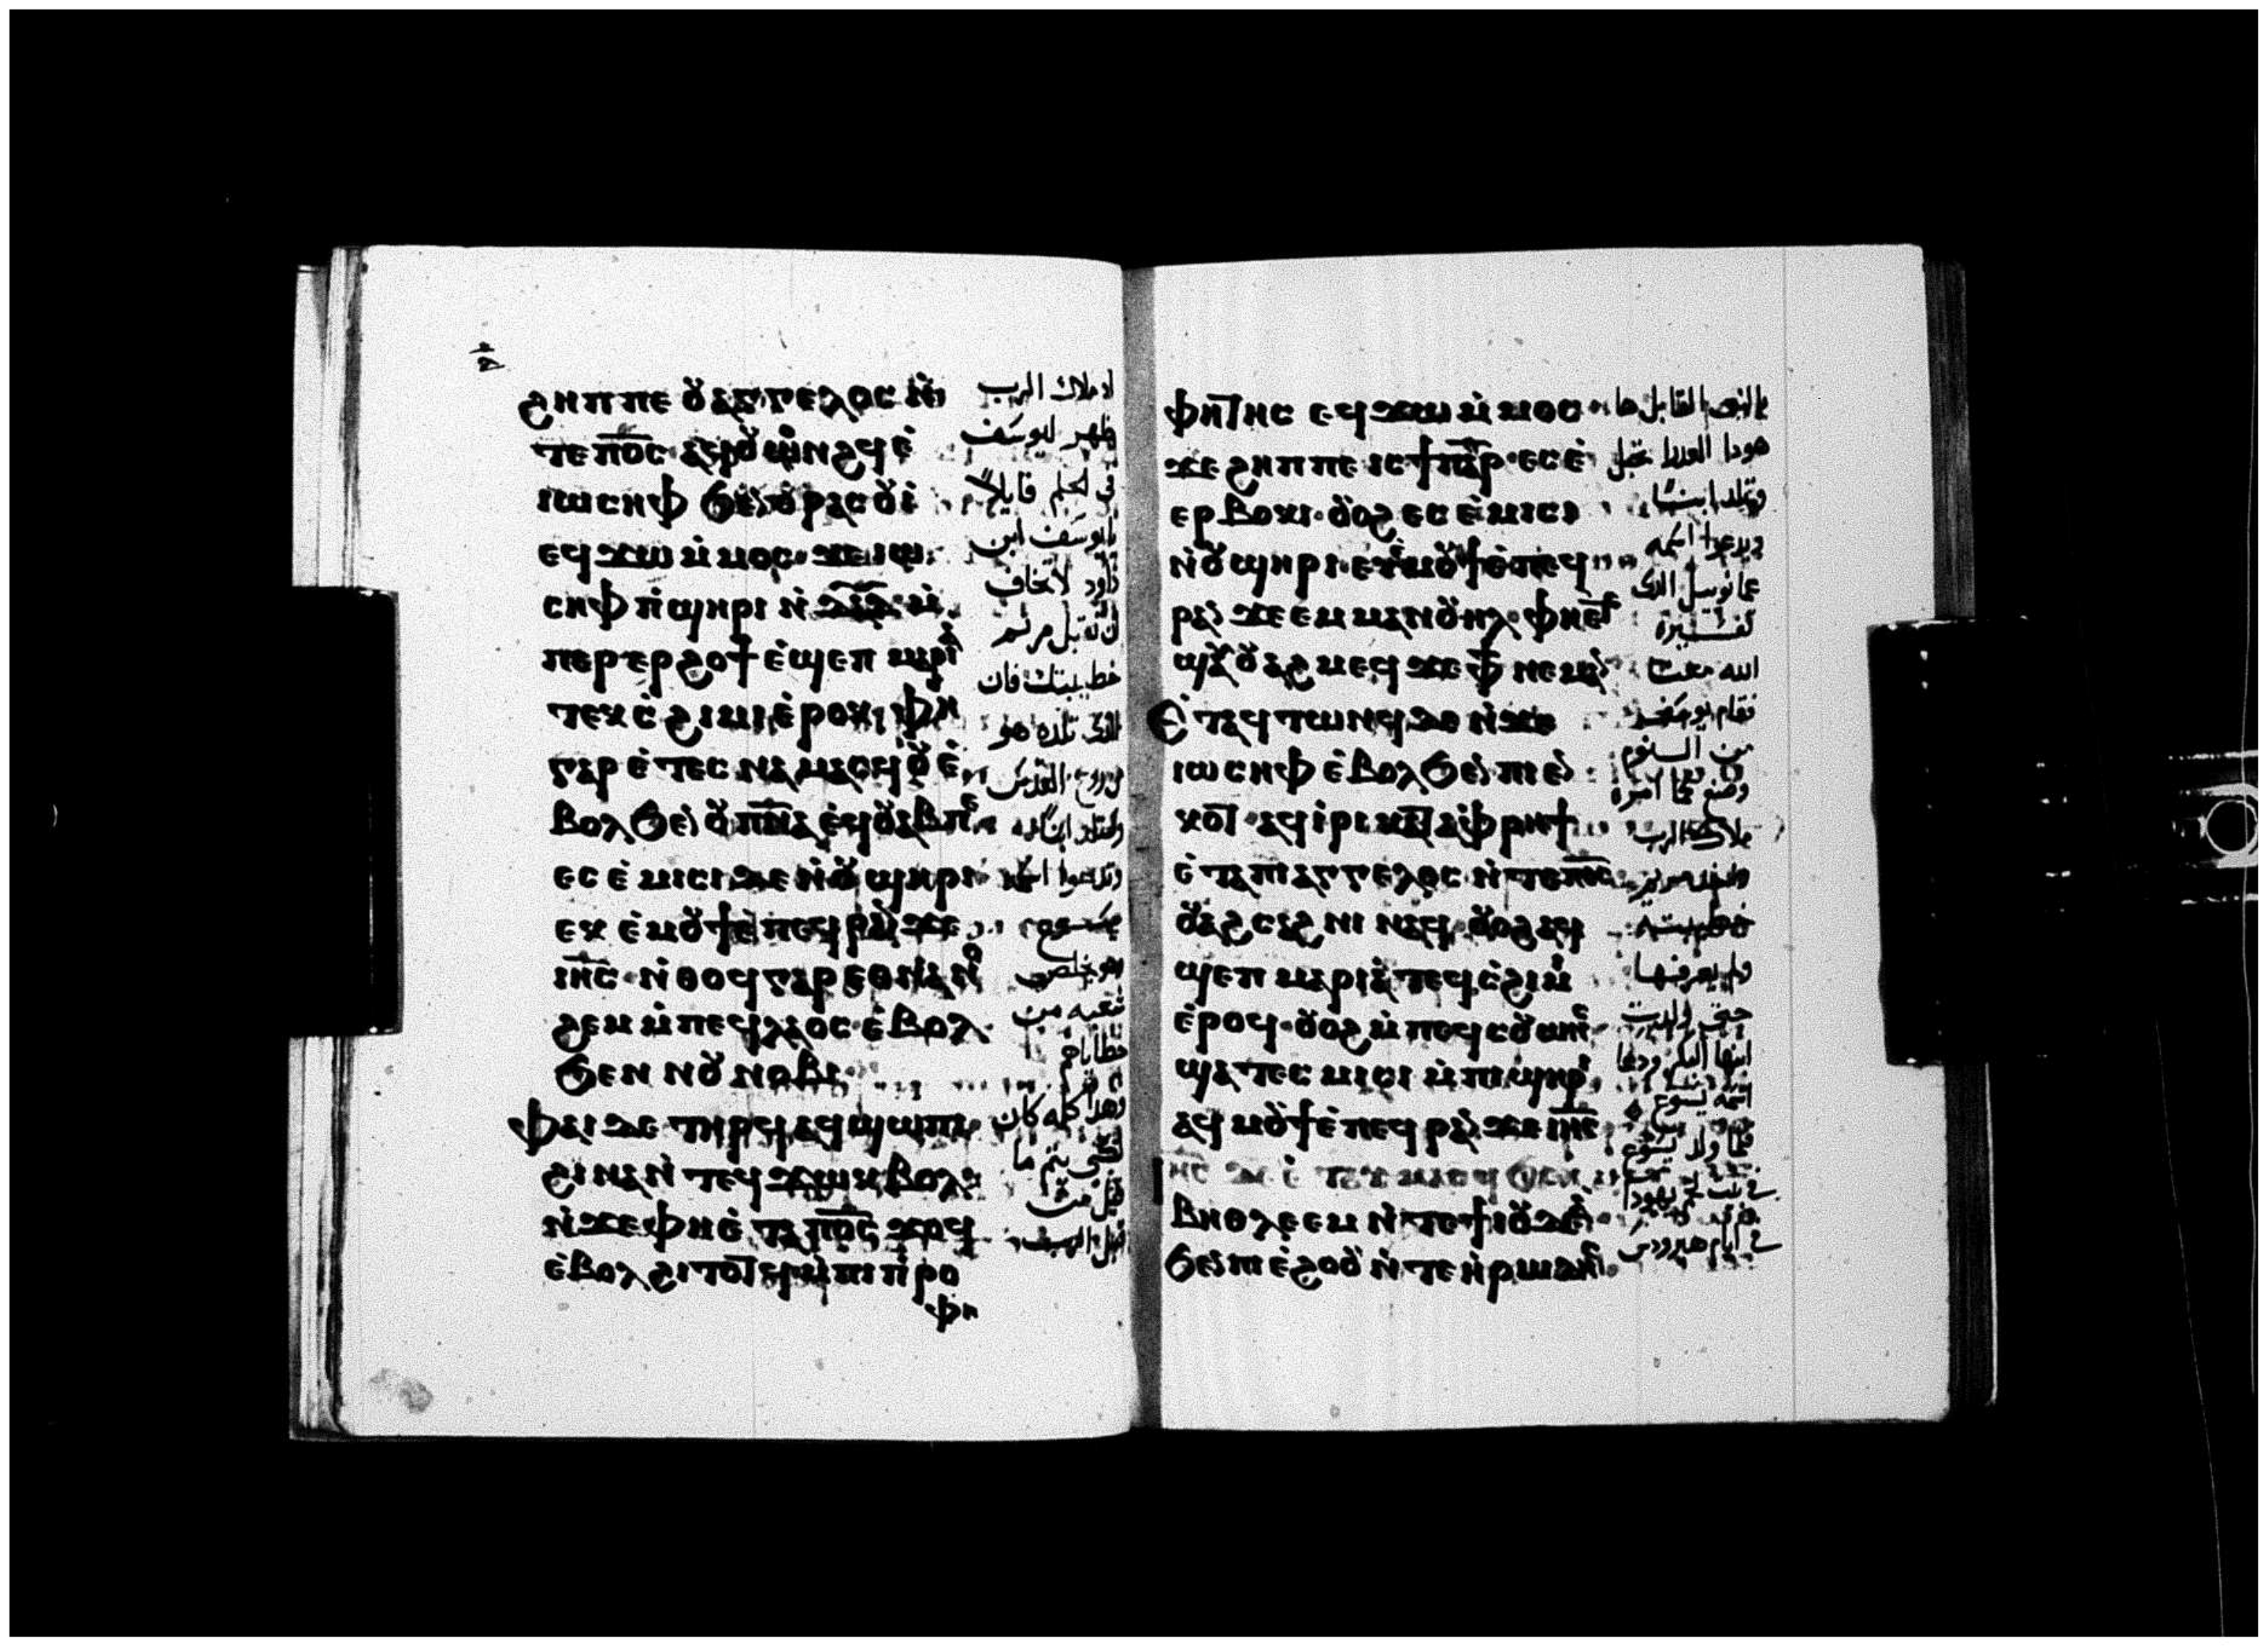 ϩⲏⲡⲡⲉ ⲟⲩⲁⲅⲅⲉⲗⲟⲥ ⲛ̀
ⲧⲉ ⲡ⳪ ⲁϥⲟⲩⲱⲛϩϥ ⲉ̀
ⲓⲱⲥⲏⲫ ϧⲉⲛ ⲟⲩⲣⲁⲥⲟⲩⲓ̀
ⲉϥϫⲱ ⲙ̀ⲙⲟⲥ ϫⲉ ⲓⲱ
ⲥⲏⲫ ⲡ̀ϣⲏⲣⲓ ⲛ̀ⲇⲁⲇ ⲙ̀
ⲡⲉⲣⲉⲣϩⲟϯ ⲉ̀ϣⲉⲡ ⲙⲁⲣⲓⲁ̀
ⲧⲉⲕⲥ̀ϩⲓⲙⲓ ⲉ̀ⲣⲟⲕ ⲫⲏ
ⲅⲁⲣ ⲉ̀ⲧⲉⲥⲛⲁⲙⲁⲥϥ ⲟⲩⲉ̀
ⲃⲟⲗ ϧⲉⲛ ⲟⲩⲡ̅ⲛ̅ⲁ̅ ⲉϥⲟⲩⲁⲃ ⲡⲉ
ⲉⲥⲉ̀ⲙⲓⲥⲓ ⲇⲉ ⲛ̀ⲟⲩϣⲏⲣⲓ
ⲉⲕⲉ̀ⲙⲟⲩϯ ⲉ̀ⲡⲉϥⲣⲁⲛ ϫⲉ
ⲓⲏ̅ⲥ̅ ⲛ̀ⲑⲟϥ ⲅⲁⲣ ⲉⲑⲛⲁⲛⲟ
ϩⲉⲙ ⲙ̀ⲡⲉϥⲗⲁⲟⲥ ⲉ̀ⲃⲟⲗ
ϧⲉⲛ ⲛⲟⲩⲛⲟⲃⲓ
ⲫⲁⲓ ⲇⲉ ⲧⲏⲣϥ ⲁϥϣⲱⲡⲓ
ϩⲓⲛⲁ ⲛ̀ⲧⲉϥϫⲱⲕ ⲃⲟⲗ
ⲛ̀ϫⲉ ⲫⲏ ⲉ̀ⲧⲁ ⲡ⳪ ϫⲟϥ
ⲉ̀ⲃⲟⲗ ϩⲓⲧⲟⲧϥ ⲙ̀ⲡⲓⲡ̀ⲣⲟ
ⲫⲏ
اد ملاك الرب
ظهر ليوسف
في الحلم قايلاً
يا يوسف ابن
داود لا تخاف
ان تقبل مريم
خطيبتك فان
الذي تلده هو
من روح القدس
وستلد ابناً
وتدعوا اسمه
يسوع
هو يخلص
شعبه من
خطاياهم
وهذا كله كان
لكي يتم ما
قيل من
قبل الرب
ⲫⲏⲧⲏⲥ ⲉϥϫⲱ ⲙ̀ⲙⲟⲥ
ϫⲉ ϩⲏⲡⲡⲉ ⲓⲥ ϯⲡⲁⲣ ⲉⲥⲉ̀
ⲉⲣⲃⲟⲕⲓ ⲟⲩⲟϩ ⲉⲥⲉ̀ⲙⲓⲥⲓ
ⲛ̀ⲟⲩϣⲏⲣⲓ ⲉⲩⲉ̀ⲙⲟⲩϯ ⲉ̀ⲡⲉϥ
ⲣⲁⲛ ϫⲉ ⲉⲙⲙⲁⲛⲟⲩⲏⲗ ⲫⲏ ⲉⲧⲉ
ϣⲁⲩⲟⲩⲁϩⲙⲉϥ ϫⲉ ⲫϯ ⲛⲉⲙⲁⲛ
Ⲉ̀ⲧⲁϥⲧⲱⲛϥ ⲇⲉ ⲛ̀ϫⲉ
ⲓⲱⲥⲏⲫ ⲉ̀ⲃⲟⲗ ϧⲉⲛ ⲡⲓⲉⲛ
ⲕⲟⲧ ⲁϥⲓ̀ⲣⲓ ⲕⲁⲧⲁ ⲫ̀ⲣⲏϯ
ⲉ̀ⲧⲁ ⲡⲓⲁⲅⲅⲉⲗⲟⲥ ⲛ̀ⲧⲉ ⲡ⳪
ⲟⲩⲁϩⲥⲁϩⲛⲓ ⲛⲁϥ ⲟⲩⲟϩ ⲁϥ
ϣⲉⲡ ⲙⲁⲣⲓⲁ̀ ⲧⲉϥⲥ̀ϩⲓⲙⲓ
ⲉ̀ⲣⲟϥ ⲟⲩⲟϩ ⲙ̀ⲡⲉϥⲥⲟⲩⲱⲛⲥ
ϣⲁⲧⲉⲥⲙⲓⲥⲓ ⲙ̀ⲡⲓϣⲏⲣⲓ
ⲁϥⲙⲟⲩϯ ⲉ̀ⲡⲉϥⲣⲁⲛ ϫⲉ ⲓⲏ̅ⲥ̅
ⲓⲏ̅ⲥ̅ ⲇⲉ ⲉ̀ⲧⲁⲩⲙⲁⲥϥ ϧⲉⲛ
ⲃⲏⲑⲗⲉⲉⲙ ⲛ̀ⲧⲉ ϯⲓⲟⲩⲇⲉⲁ̀
ϧⲉⲛ ⲛⲓⲉ̀ϩⲟⲟⲩ ⲛ̀ⲧⲉ ⲏ̀ⲣⲱⲇⲏⲥ
بالنبي القايل ها
هودا العدرا تحبل
وتلد ابناً
ويدعوا اسمه
عمانويل الدي
تفسيره
الله معنا
فقام يوسف
من النوم
وصنع كما امره
ملاك الرب
ولم يعرفها
حتى ولدت
ابنها البكر ودعا
اسمه يسوع
فلما ولد يسوع
في بيت لحم يهودا
في ايام هيرودس